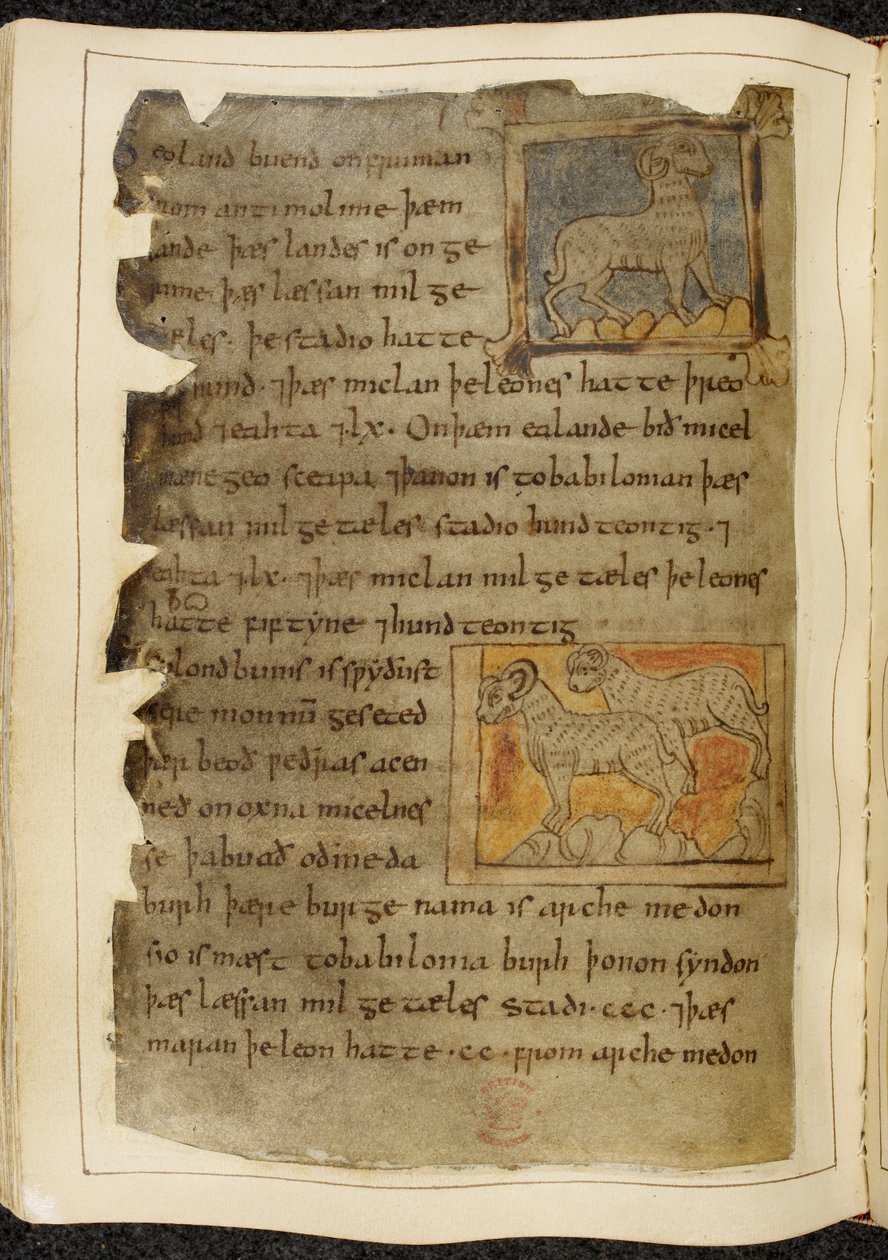 eoland buend on fruman
from antimolime þæm
lande þæs landes is on ge
rime þæs læssan mil ge
tæles · þe stadio hatte
hund · ⁊ þæs miclan þe leones hatte þreo
hund ⁊ eahta ⁊ lx · On þæm ealande bið micel
mænegeo sceapa ⁊ þanon is to babilonian þæs
læssan mil getæles stadio hundteontig · ⁊
eahta ⁊ lx · ⁊ þæs miclan mil getæles þe leones
hatte fiftyne ⁊ hundteontig
lond bunis is spyðust
monnū geseted
þær beoð peðras acen
ned on oxna micelnes
se þa buað oð meda
burh þære burge nama is archemedon
sio is mæst to babilonia burh þonon syndon
þæs læssan mil getæles stadi · ccc · ⁊ þæs
maran þe leon hatte · cc · from archemedon
BRITISH